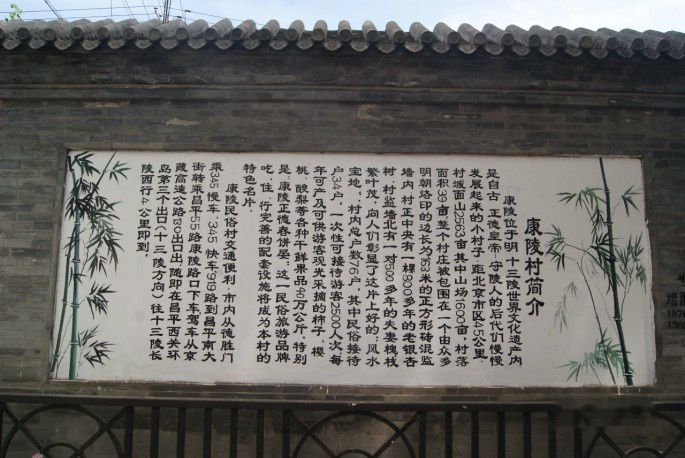 康陵村简介
康陵位于明十三陵世界文化遗产内
是自古 正德皇帝 守陵人的后代们慢慢
发展起来的小村子 距北京市区45公里
村域面积 其中山场1600亩，村落
面积39亩整个村庄被包围在一个由众多
明朝烙印的边长为163米的正方形砖混监
墙内村正中央有一棵800多年的老银杏
树，村监墙北有一对500多年的夫妻栈栈
繁叶茂，向人们彰显了这片上好的，风水
宝地。村内总户数76户，其中民俗接待
户34户，一次性可接待游客2500人次每
年可产及可供游客观光采摘的柿子，樱
桃，酸梨等各种干鲜果品40万公斤，特别
是“康陵正德春饼宴”这一民俗旅游品牌
吃、住、行完善的配套设施将成为本村的
特色名片。
康陵民俗村交通便利，市内从德胜门
乘345慢车，345快车919路到昌平南大
街转乘昌平55路康陵路口下车驾车从京
藏高速公路 出口出随即在昌平西关环
岛第三个出口（十三陵方向）往十三陵
陵西行4公里即到。